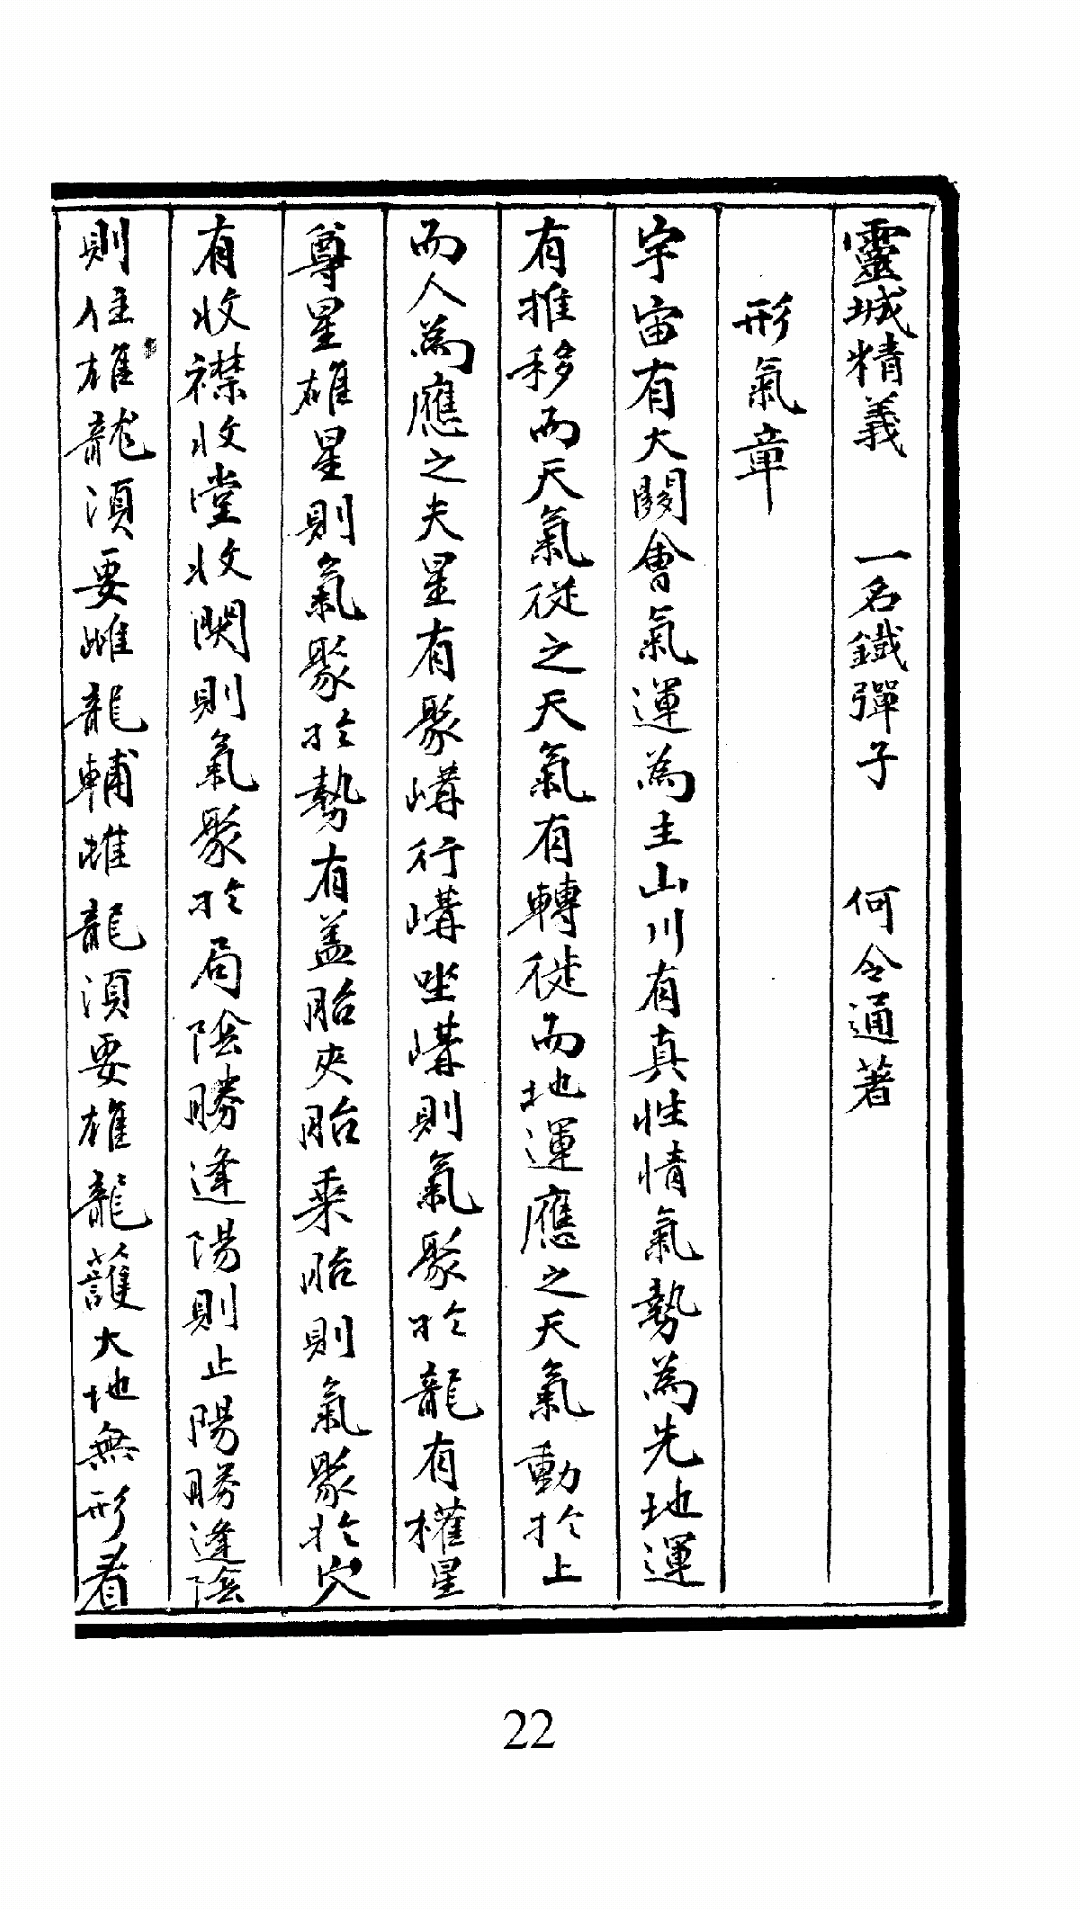 靈城精義　一名鐵彈子　何令通著
形氣章
宇宙有大關會氣運為主山川有真性情氣勢為先地運
有推移而天氣從之天氣有轉徙而地運應之天氣動於上
而人為應之夫星有聚嶹行嶹坐嶹則氣聚於龍有權星
尊星雄星則氣聚於勢有盖胎夾胎乘胎則氣聚於穴
有收襟收堂收関則氣聚於局陰勝逢陽則止陽勝逢陰
則住雄龍須要雌龍輔雌龍須要雄龍護大地無形看
22